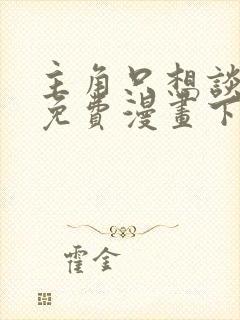 主角只想談
免費漫畫下
霍金